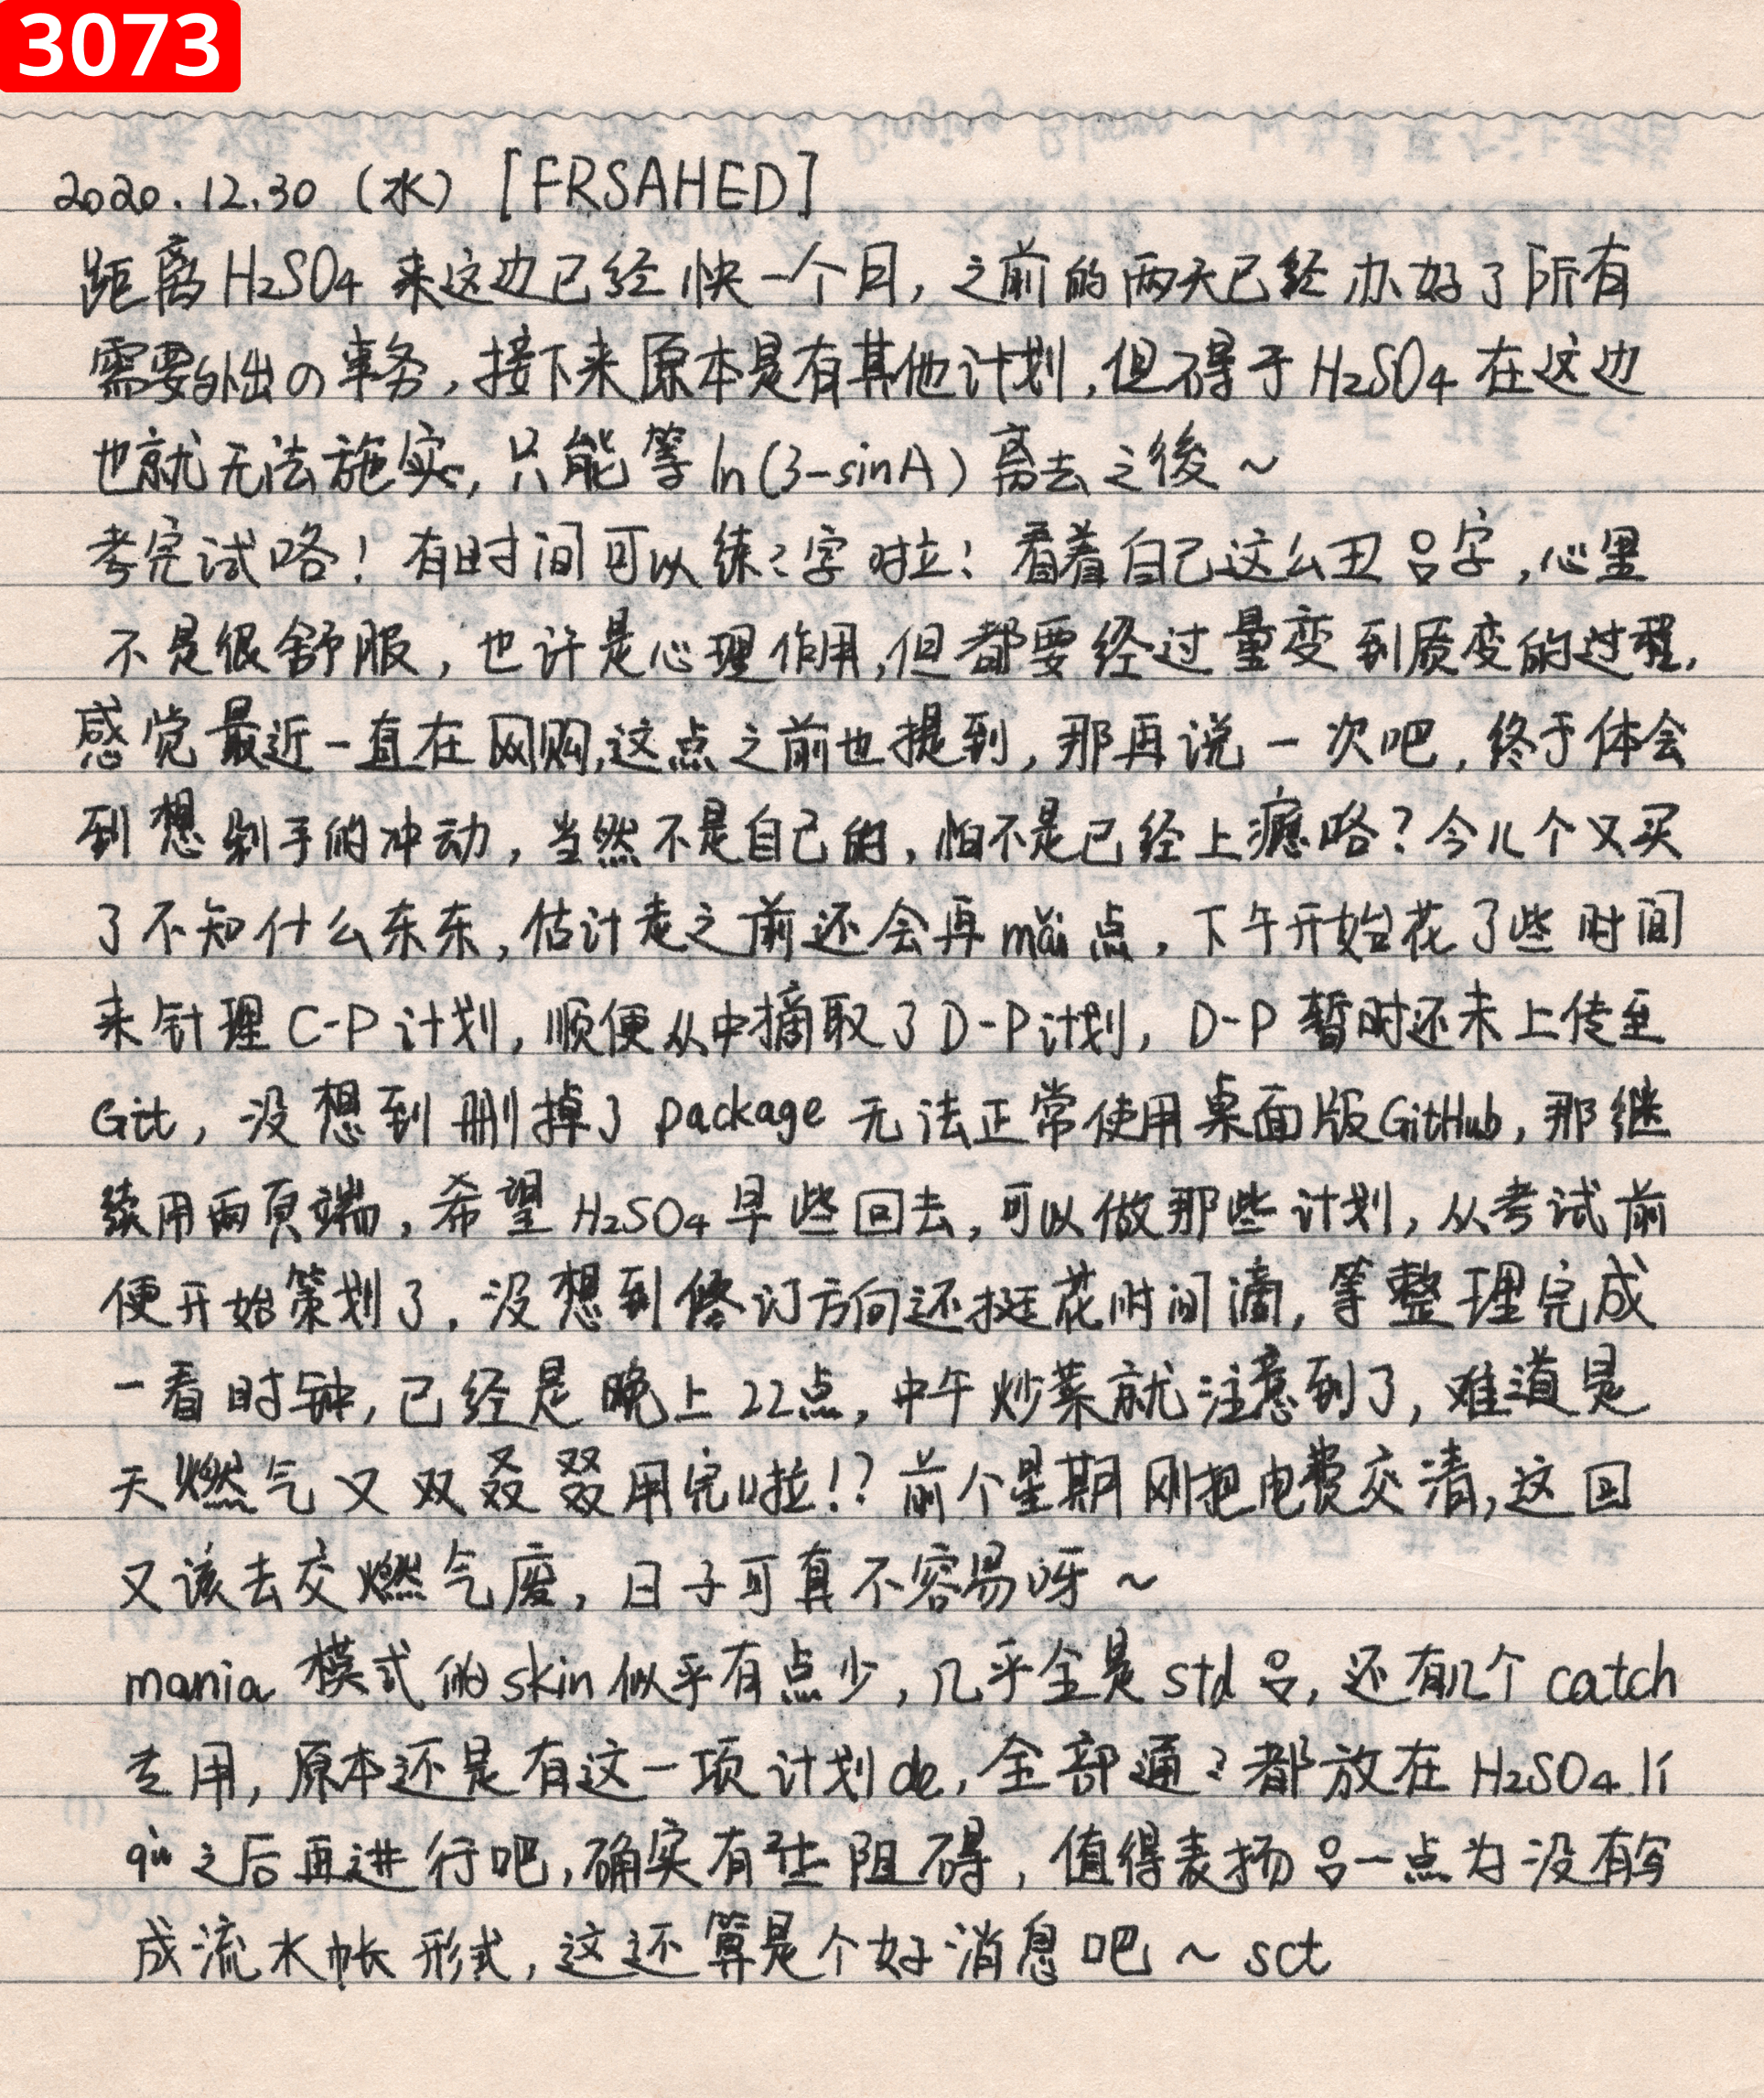 3073
2020.12.30（水）[FRSAHED]
距离H₂SO₄来这边已经快一个月，之前的两天已经办好了所有
需要外出の事务，接下来原本是有其他计划，但碍于H₂SO₄在这边
也就无法施实，只能等ln(3-sinA)离去之後～
考完试咯！有时间可以练々字啦！看着自己这么丑吕字，心里
不是很舒服，也许是心理作用，但都要经过量变到质变的过程，
感觉最近一直在网购，这点之前也提到，那再说一次吧，终于体会
到想剁手的冲动，当然不是自己的，怕不是已经上瘾咯？今儿个又买
了不知什么东东，估计走之前还会再mǎi点，下午开始花了些时间
来针理C-P计划，顺便从中摘取了D-P计划，D-P暂时还未上传至
Git，没想到删掉了package无法正常使用桌面版GitHub，那继
续用两页端，希望H₂SO₄早些回去，可以做那些计划，从考试前
便开始策划了，没想到修订方向还挺花时间滴，等整理完成
一看时钟，已经是晚上22点，中午炒菜就注意到了，难道是
天燃气又双叒叕用完啦!？前个星期刚把电费交清，这回
又该去交燃气废，日子可真不容易呀～
mania模式的skin似乎有点少，几乎全是std吕，还有几个catch
专用，原本还是有这一项计划de，全部通々都放在H₂SO₄ lí
qù之后再进行吧，确实有些阻碍，值得表扬吕一点为没有写
成流水帐形式，这还算是个好消息吧～sct